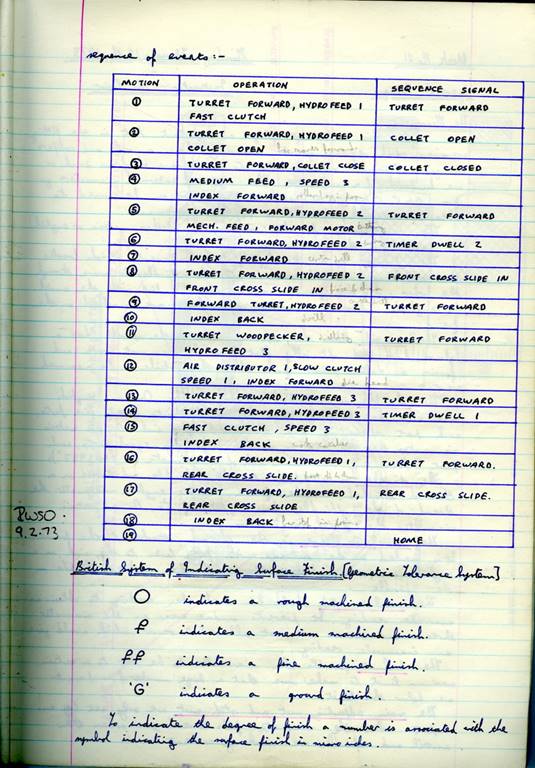 sequence of events:-
MOTION OPERATION SEQUENCE SIGNAL
① TURRET FORWARD, HYDROFEED 1 TURRET FORWARD
FAST CLUTCH
② TURRET FORWARD, HYDROFEED 1 COLLET OPEN
COLLET OPEN
③ TURRET FORWARD, COLLET CLOSE COLLET CLOSED
④ MEDIUM FEED, SPEED 3
INDEX FORWARD
⑤ TURRET FORWARD, HYDROFEED 2 TURRET FORWARD
MECH. FEED, FORWARD MOTOR
⑥ TURRET FORWARD, HYDROFEED 2 TIMER DWELL 2
⑦ INDEX FORWARD
⑧ TURRET FORWARD, HYDROFEED 2 FRONT CROSS SLIDE IN
FRONT CROSS SLIDE IN
⑨ FORWARD TURRET, HYDROFEED 2 TURRET FORWARD
⑩ INDEX BACK
⑪ TURRET WOODPECKER, TURRET FORWARD
HYDROFEED 3
⑫ AIR DISTRIBUTOR 1, SLOW CLUTCH
SPEED 1, INDEX FORWARD die head
⑬ TURRET FORWARD, HYDROFEED 3 TURRET FORWARD
⑭ TURRET FORWARD, HYDROFEED 3 TIMER DWELL 1
⑮ FAST CLUTCH, SPEED 3
INDEX BACK
⑯ TURRET FORWARD, HYDROFEED 1, TURRET FORWARD.
REAR CROSS SLIDE.
⑰ TURRET FORWARD, HYDROFEED 1, REAR CROSS SLIDE.
REAR CROSS SLIDE
⑱ INDEX BACK
⑲ HOME
9.2.73
British System of Indicating Surface Finish. [Geometric Tolerance System]
O indicates a rough machined finish.
f indicates a medium machined finish.
ff indicates a fine machined finish.
'G' indicates a ground finish.
To indicate the degree of finish a number is associated with the
symbol indicating the surface finish in micro inches.